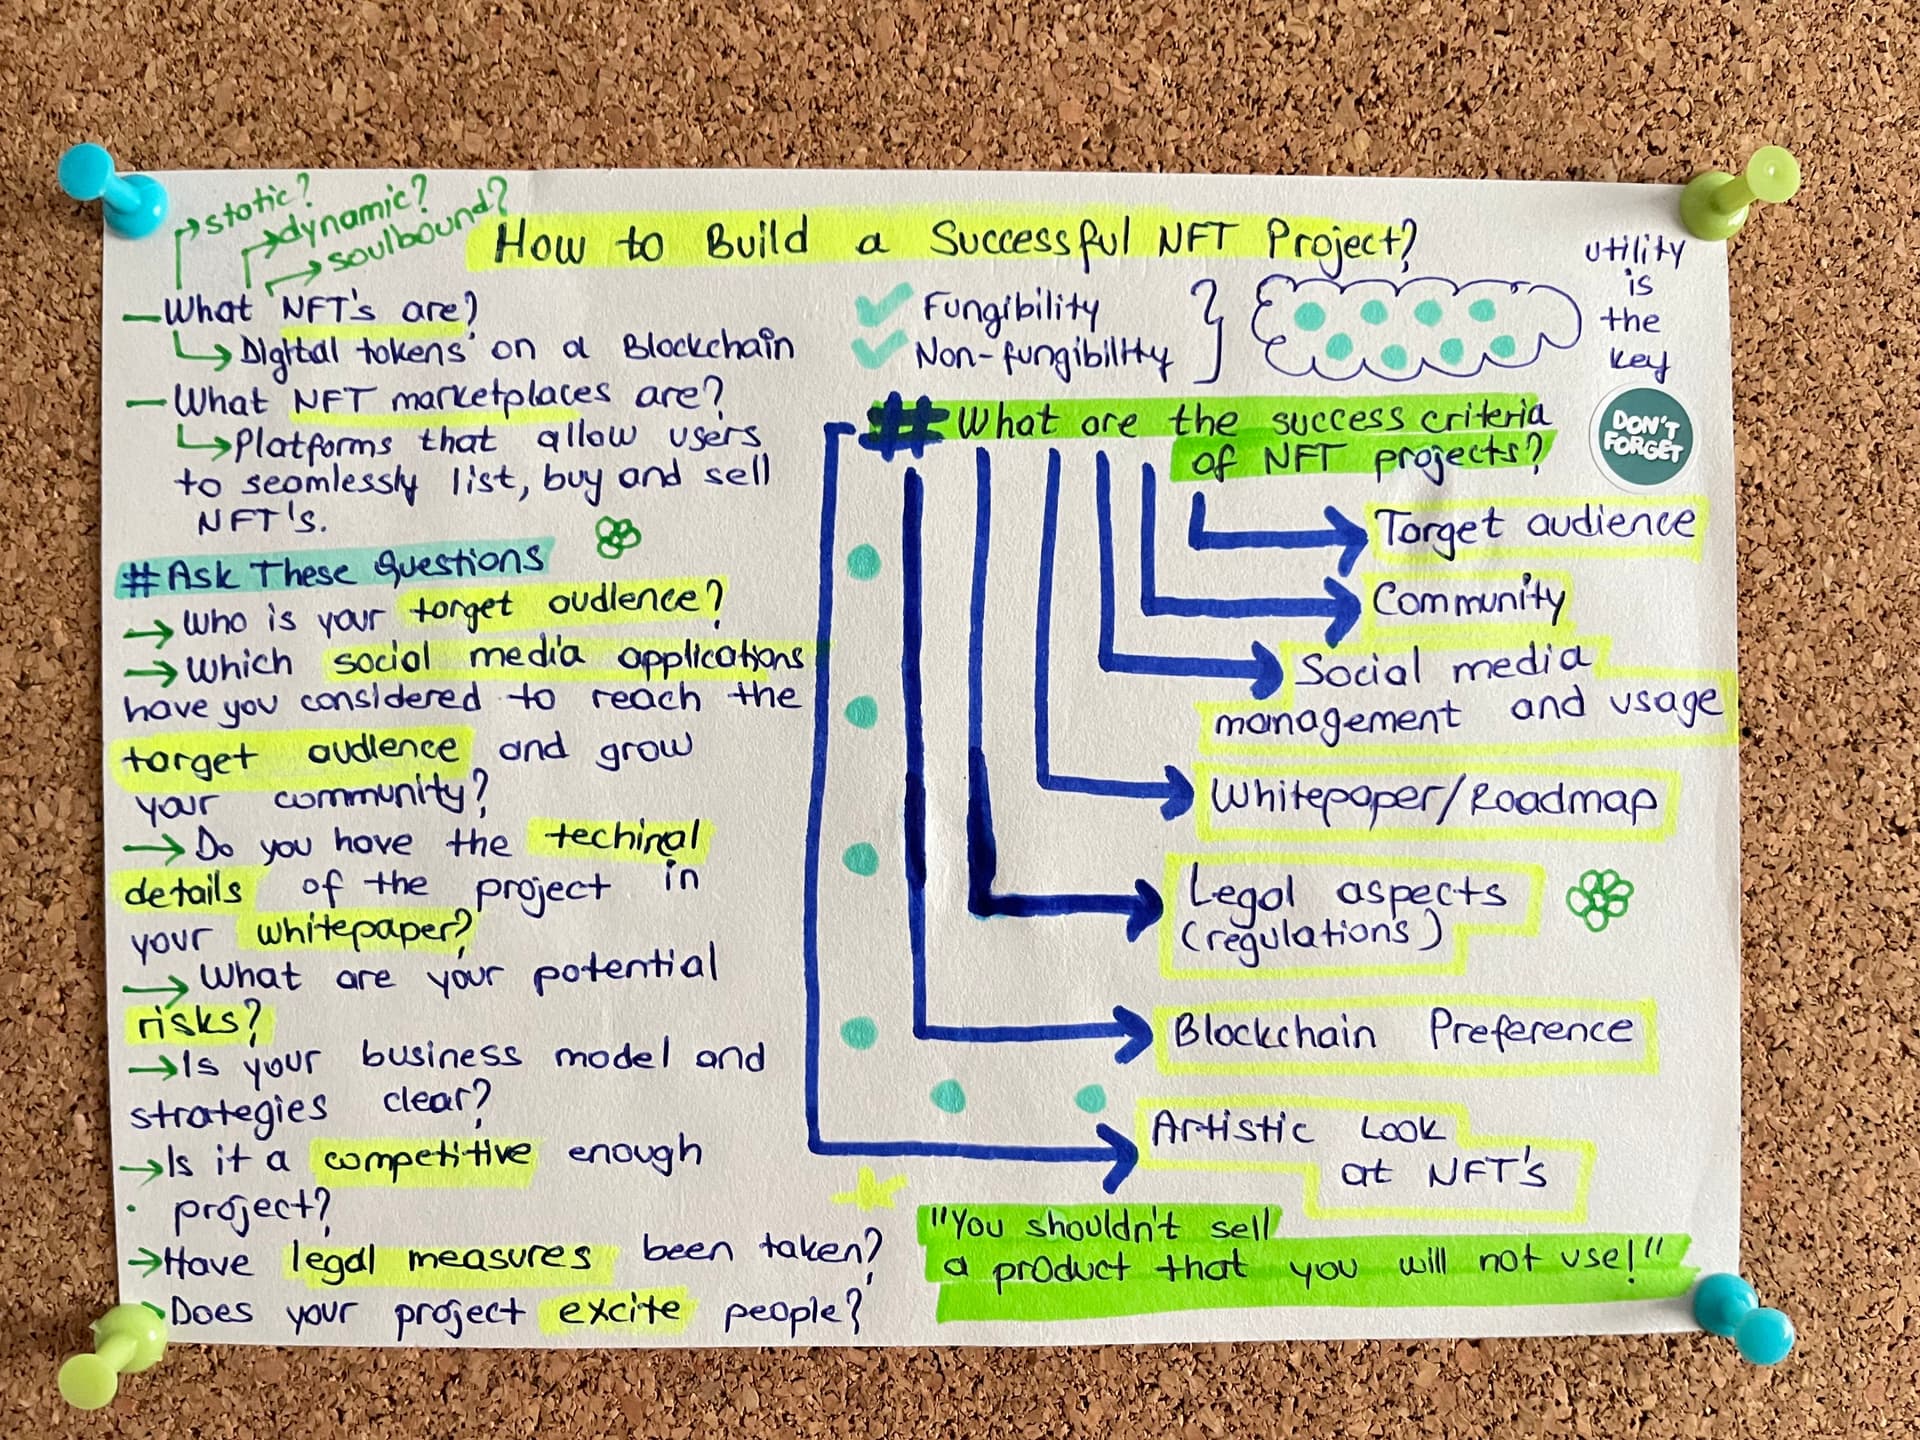 static?
dynamic?
soulbound?
How to Build a Successful NFT Project?
— What NFT's are?
Digital tokens on a Blockchain
— What NFT marketplaces are?
Platforms that allow users
to seamlessly list, buy and sell
NFT's.
# Ask These Questions
→ Who is your target audience?
→ Which social media applications
have you considered to reach the
target audience and grow
your community?
→ Do you have the techinal
details of the project in
your whitepaper?
→ What are your potential
risks?
→ Is your business model and
strategies clear?
→ Is it a competitive enough
project?
→ Have legal measures been taken?
Does your project excite people?
✓ Fungibility
✓ Non-fungibility
utility
is
the
key
DON'T
FORGET
# What are the success criteria
of NFT projects?
Target audience
Community
Social media
management and usage
Whitepaper/Roadmap
Legal aspects
(regulations)
Blockchain Preference
Artistic Look
at NFT's
"You shouldn't sell
a product that you will not use!"